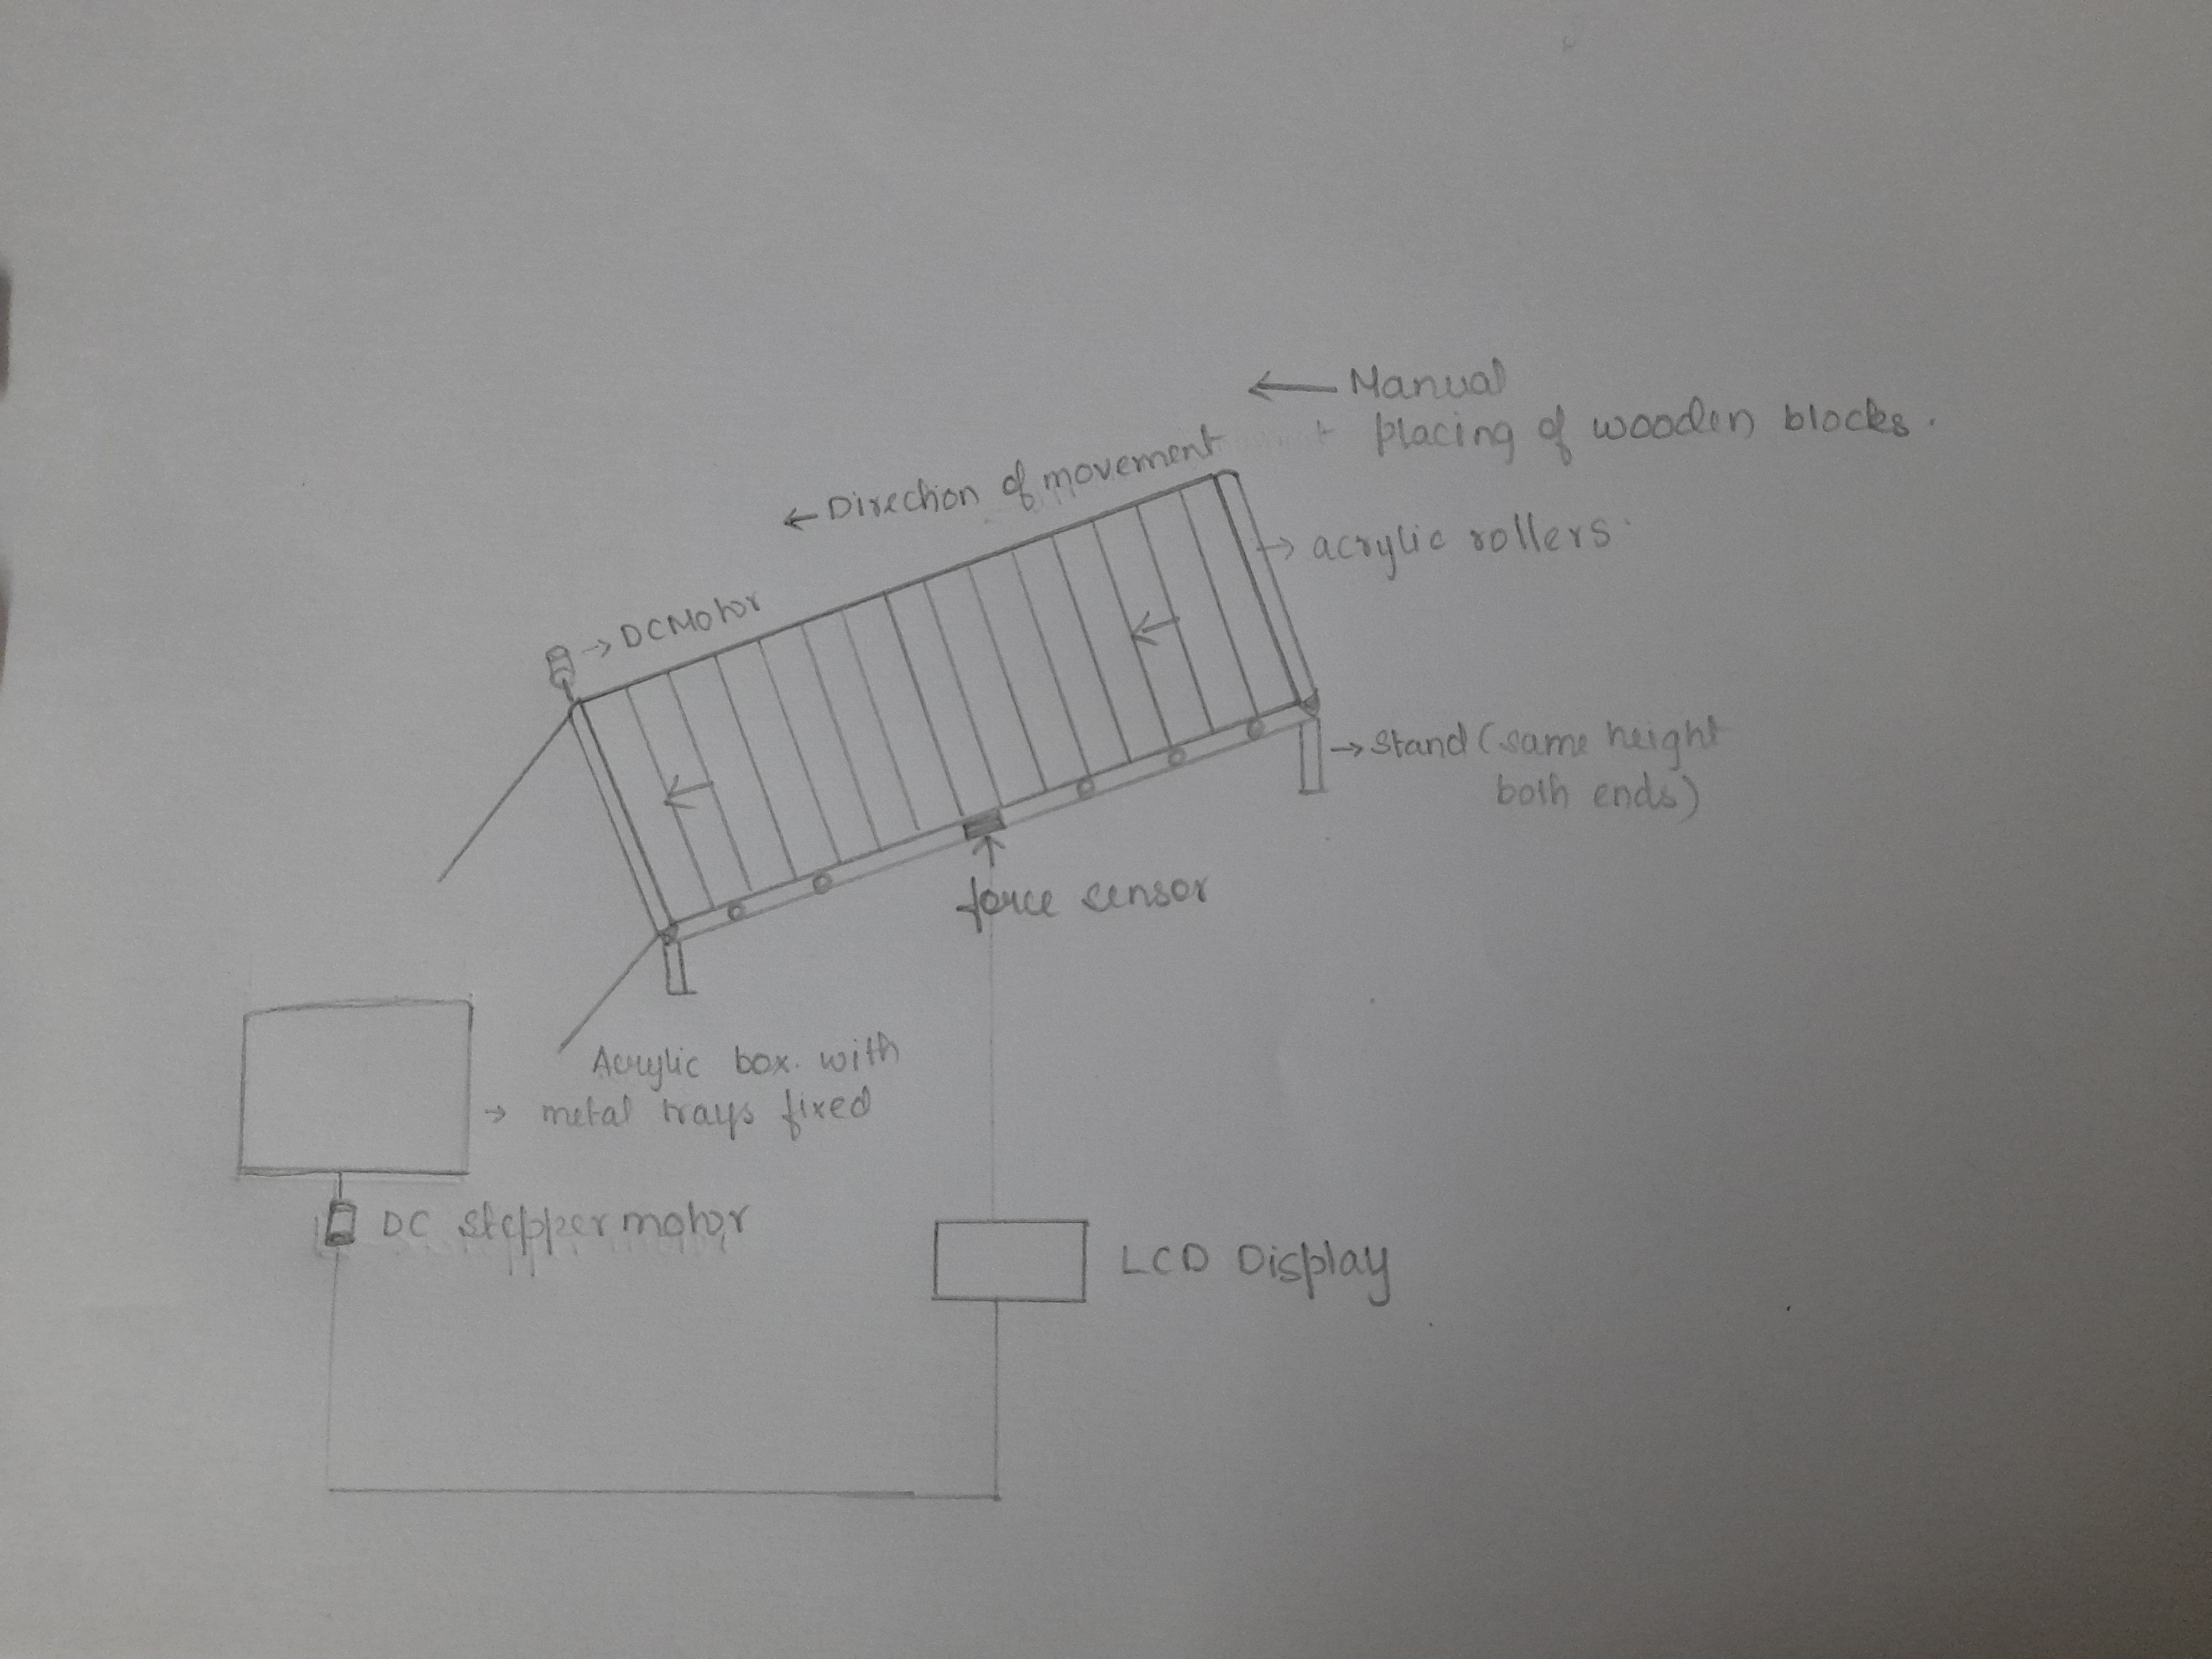 ← Manual
placing of wooden blocks.
← Direction of movement
→ acrylic rollers.
→ DC Motor
→ Stand (same height
both ends)
force sensor
Acrylic box with
→ metal trays fixed
DC stepper motor
LCD Display